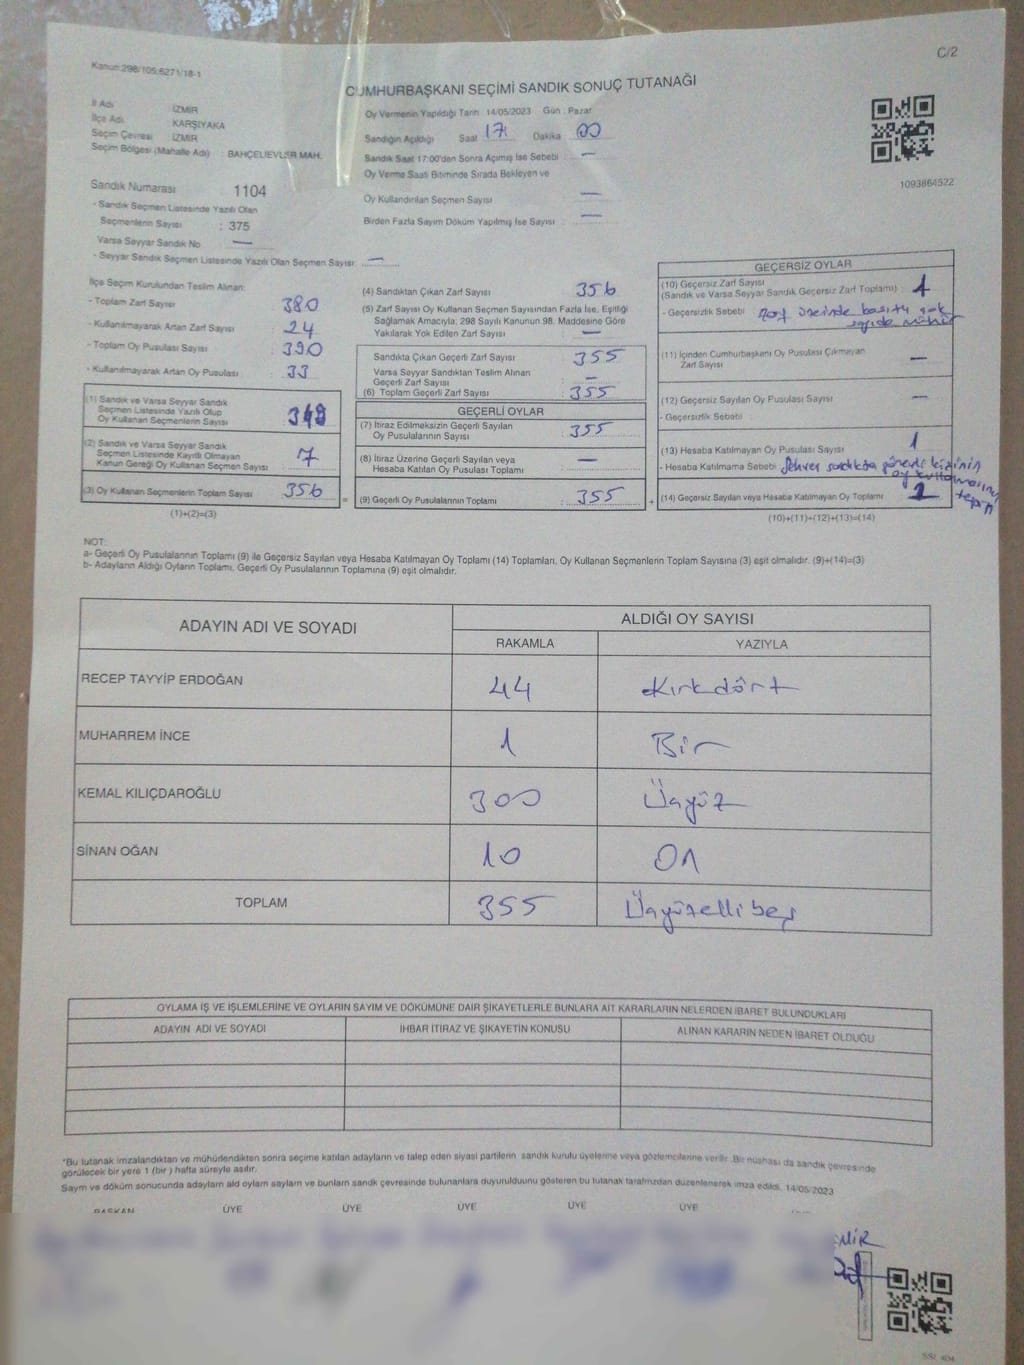 C/2
Kanun:298/105;6271/18-1
CUMHURBAŞKANI SEÇİMİ SANDIK SONUÇ TUTANAĞI
İl Adı İZMİR
İlçe Adı KARŞIYAKA
Seçim Çevresi İZMİR
Seçim Bölgesi (Mahalle Adı) : BAHÇELİEVLER MAH.
Oy Vermenin Yapıldığı Tarih 14/05/2023 Gün : Pazar
Sandığın Açıldığı Saat 17 Dakika 00
Sandık Saat 17:00'den Sonra Açılmış İse Sebebi : —
Oy Verme Saati Bitiminde Sırada Bekleyen ve
Oy Kullandırılan Seçmen Sayısı —
Birden Fazla Sayım Döküm Yapılmış İse Sayısı —
1093864522
Sandık Numarası 1104
- Sandık Seçmen Listesinde Yazılı Olan
Seçmenlerin Sayısı : 375
Varsa Seyyar Sandık No —
- Seyyar Sandık Seçmen Listesinde Yazılı Olan Seçmen Sayısı: —
İlçe Seçim Kurulundan Teslim Alınan:
- Toplam Zarf Sayısı 380
- Kullanılmayarak Artan Zarf Sayısı : 24
- Toplam Oy Pusulası Sayısı : 390
- Kullanılmayarak Artan Oy Pusulası : 33
(1) Sandık ve Varsa Seyyar Sandık
Seçmen Listesinde Yazılı Olup
Oy Kullanan Seçmenlerin Sayısı : 349
(2) Sandık ve Varsa Seyyar Sandık
Seçmen Listesinde Kayıtlı Olmayan
Kanun Gereği Oy Kullanan Seçmen Sayısı : 7
(3) Oy Kullanan Seçmenlerin Toplam Sayısı 356
(1)+(2)=(3)
(4) Sandıktan Çıkan Zarf Sayısı 356
(5) Zarf Sayısı Oy Kullanan Seçmen Sayısından Fazla İse, Eşitliği
Sağlamak Amacıyla; 298 Sayılı Kanunun 98. Maddesine Göre
Yakılarak Yok Edilen Zarf Sayısı : —
Sandıkta Çıkan Geçerli Zarf Sayısı : 355
Varsa Seyyar Sandıktan Teslim Alınan
Geçerli Zarf Sayısı : —
(6) Toplam Geçerli Zarf Sayısı : 355
GEÇERLİ OYLAR
(7) İtiraz Edilmeksizin Geçerli Sayılan
Oy Pusulalarının Sayısı : 355
(8) İtiraz Üzerine Geçerli Sayılan veya
Hesaba Katılan Oy Pusulası Toplamı : —
= (9) Geçerli Oy Pusulalarının Toplamı : 355 +
GEÇERSİZ OYLAR
(10) Geçersiz Zarf Sayısı
(Sandık ve Varsa Seyyar Sandık Geçersiz Zarf Toplamı) : 1
- Geçersizlik Sebebi : üzerinde
mühür
(11) İçinden Cumhurbaşkanı Oy Pusulası Çıkmayan
Zarf Sayısı —
(12) Geçersiz Sayılan Oy Pusulası Sayısı —
- Geçersizlik Sebebi
(13) Hesaba Katılmayan Oy Pusulası Sayısı 1
- Hesaba Katılmama Sebebi : sandıkta görevli kişinin
oy kullanmasının
tespiti
(14) Geçersiz Sayılan veya Hesaba Katılmayan Oy Toplamı
(10)+(11)+(12)+(13)=(14)
NOT:
a- Geçerli Oy Pusulalarının Toplamı (9) ile Geçersiz Sayılan veya Hesaba Katılmayan Oy Toplamı (14) Toplamları, Oy Kullanan Seçmenlerin Toplam Sayısına (3) eşit olmalıdır. (9)+(14)=(3)
b- Adayların Aldığı Oyların Toplamı, Geçerli Oy Pusulalarının Toplamına (9) eşit olmalıdır.
ADAYIN ADI VE SOYADI ALDIĞI OY SAYISI
RAKAMLA YAZIYLA
RECEP TAYYİP ERDOĞAN 44 Kırkdört
MUHARREM İNCE 1 Bir
KEMAL KILIÇDAROĞLU 300 Üçyüz
SİNAN OĞAN 10 On
TOPLAM 355 Üçyüzellibeş
OYLAMA İŞ VE İŞLEMLERİNE VE OYLARIN SAYIM VE DÖKÜMÜNE DAİR ŞİKAYETLERLE BUNLARA AİT KARARLARIN NELERDEN İBARET BULUNDUKLARI
ADAYIN ADI VE SOYADI İHBAR İTİRAZ VE ŞİKAYETİN KONUSU ALINAN KARARIN NEDEN İBARET OLDUĞU
*Bu tutanak imzalandıktan ve mühürlendikten sonra seçime katılan adayların ve talep eden siyasi partilerin sandık kurulu üyelerine veya gözlemcilerine verilir. Bir nüshası da sandık çevresinde
görülecek bir yere 1 (bir) hafta süreyle asılır.
Sayım ve döküm sonucunda adayların ald oyların sayıları ve bunların sandk çevresinde bulunanlara duyurulduunu gösteren bu tutanak tarafımzdan düzenlenerek imza edildi. 14/05/2023
BAŞKAN ÜYE ÜYE ÜYE ÜYE ÜYE